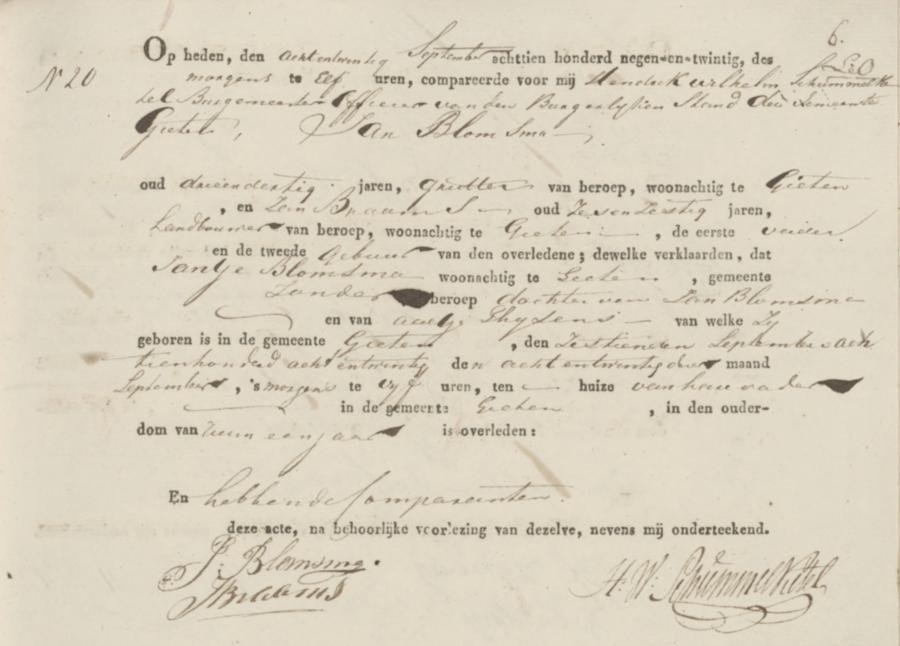 6.
Op heden, den achtentwintig September achttien honderd negen-en-twintig, des
No 20
morgens te Elf uren, compareerde voor mij Hendrik Wilhelm Schummelke
tel Burgemeester Officier van den Burgerlyken Stand der Gemeente
Gieten, Jan Blomsma
oud drieendertig jaren, van beroep, woonachtig te Gieten
, en Jan Braams oud Zesenzestig jaren,
Landbouwer van beroep, woonachtig te Gieten , de eerste vader
en de tweede Gebuur van den overledene; dewelke verklaarden, dat
Jantje Blomsma woonachtig te Gieten , gemeente
Zonder beroep dochter van Jan Blomsma
en van Thysens van welke Zy
geboren is in de gemeente Gieten , den Zestienden September ach
tienhonderd achtentwintig den achtentwintig der maand
September , 's morgens te vyf uren, ten huize van haar vader
in de gemeente Gieten , in den ouder-
dom van ruim een jaar is overleden:
En hebbende Comparanten
deze acte, na behoorlijke voorlezing van dezelve, nevens mij onderteekend.
J. Blomsma.
JBraams
H. W. Schummelketel